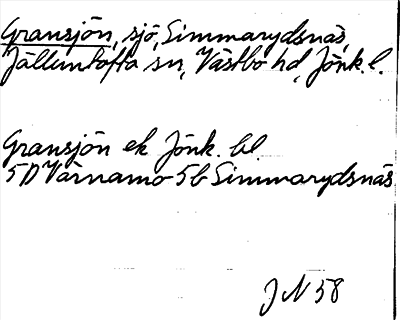 Gransjön, sjö, Simmarydsnäs,
Jälluntofta sn, Västbo hd, Jönk. l.
Gransjön ek Jönk. bl.
5D Värnamo 5b Simmarydsnäs
JN 58